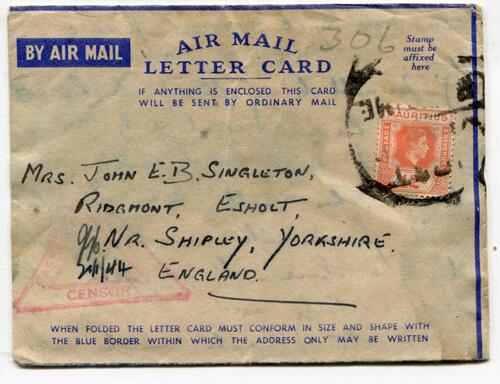 306
BY AIR MAIL
AIR MAIL
LETTER CARD
Stamp
must be
affixed
here
IF ANYTHING IS ENCLOSED THIS CARD
WILL BE SENT BY ORDINARY MAIL
MAURITIUS
POSTAGE
MRS. JOHN E.B. SINGLETON,
RIDGMONT, ESHOLT,
NR. SHIPLEY, YORKSHIRE.
2/1/44
ENGLAND.
CENSOR
WHEN FOLDED THE LETTER CARD MUST CONFORM IN SIZE AND SHAPE WITH
THE BLUE BORDER WITHIN WHICH THE ADDRESS ONLY MAY BE WRITTEN